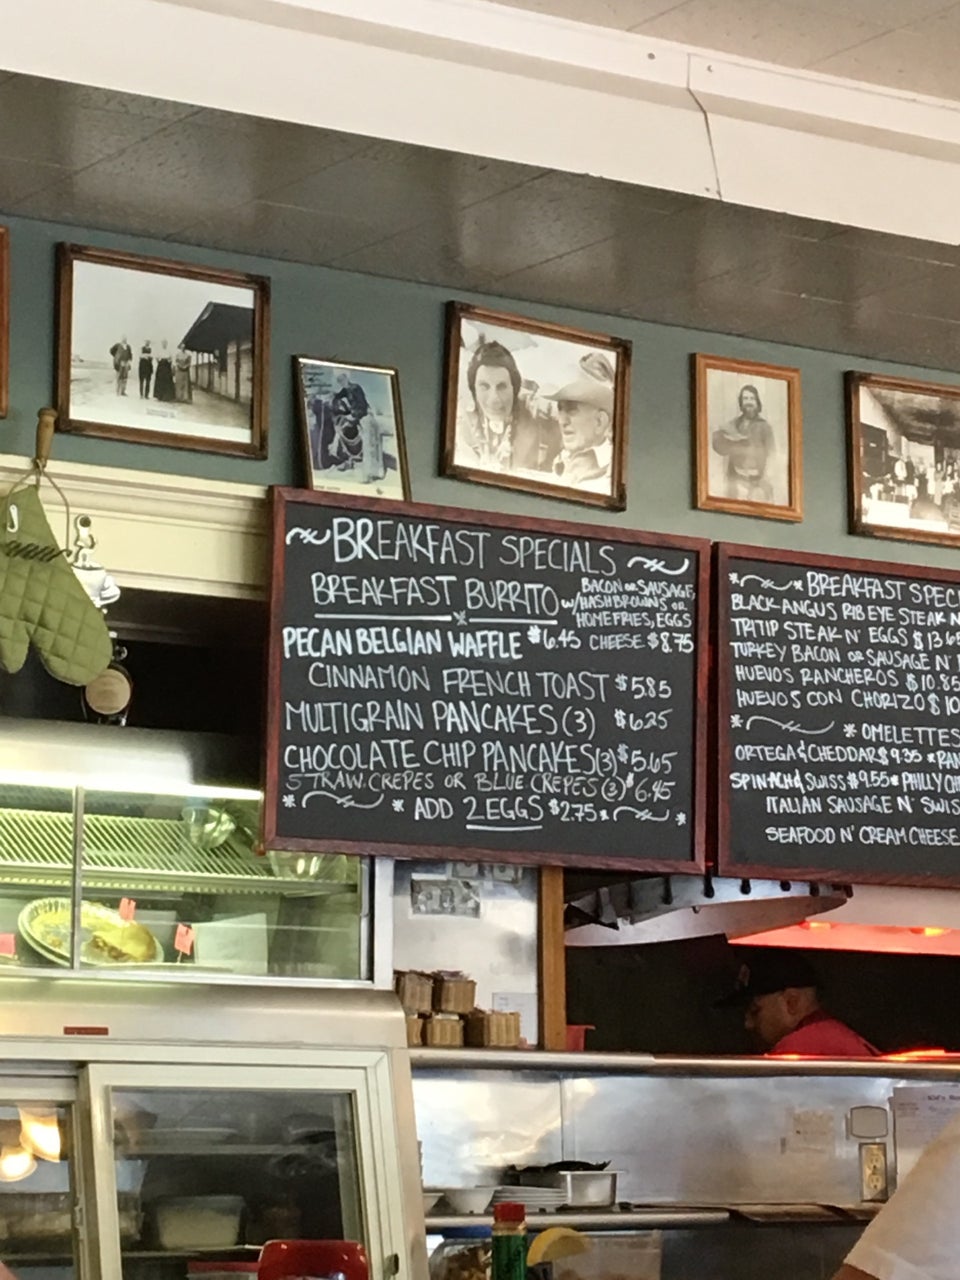 BREAKFAST SPECIALS
BREAKFAST BURRITO BACON OR SAUSAGE,
W/HASHBROWNS OR
HOMEFRIES, EGGS
CHEESE $8.75
PECAN BELGIAN WAFFLE $6.45
CINNAMON FRENCH TOAST $5.85
MULTIGRAIN PANCAKES (3) $6.25
CHOCOLATE CHIP PANCAKES (3) $5.65
STRAW.CREPES OR BLUE CREPES (3) $6.45
* * ADD 2 EGGS $2.75 * *
* * BREAKFAST SPECI
BLACK ANGUS RIB EYE STEAK N
TRITIP STEAK N' EGGS $13.6
TURKEY BACON OR SAUSAGE N'
HUEVOS RANCHEROS $10.85
HUEVOS CON CHORIZO $10
* * OMELETTES
ORTEGA & CHEDDAR $9.35 *
SPINACH & SWISS $9.55 * PHILLY CH
ITALIAN SAUSAGE N' SWIS
SEAFOOD N' CREAM CHEESE